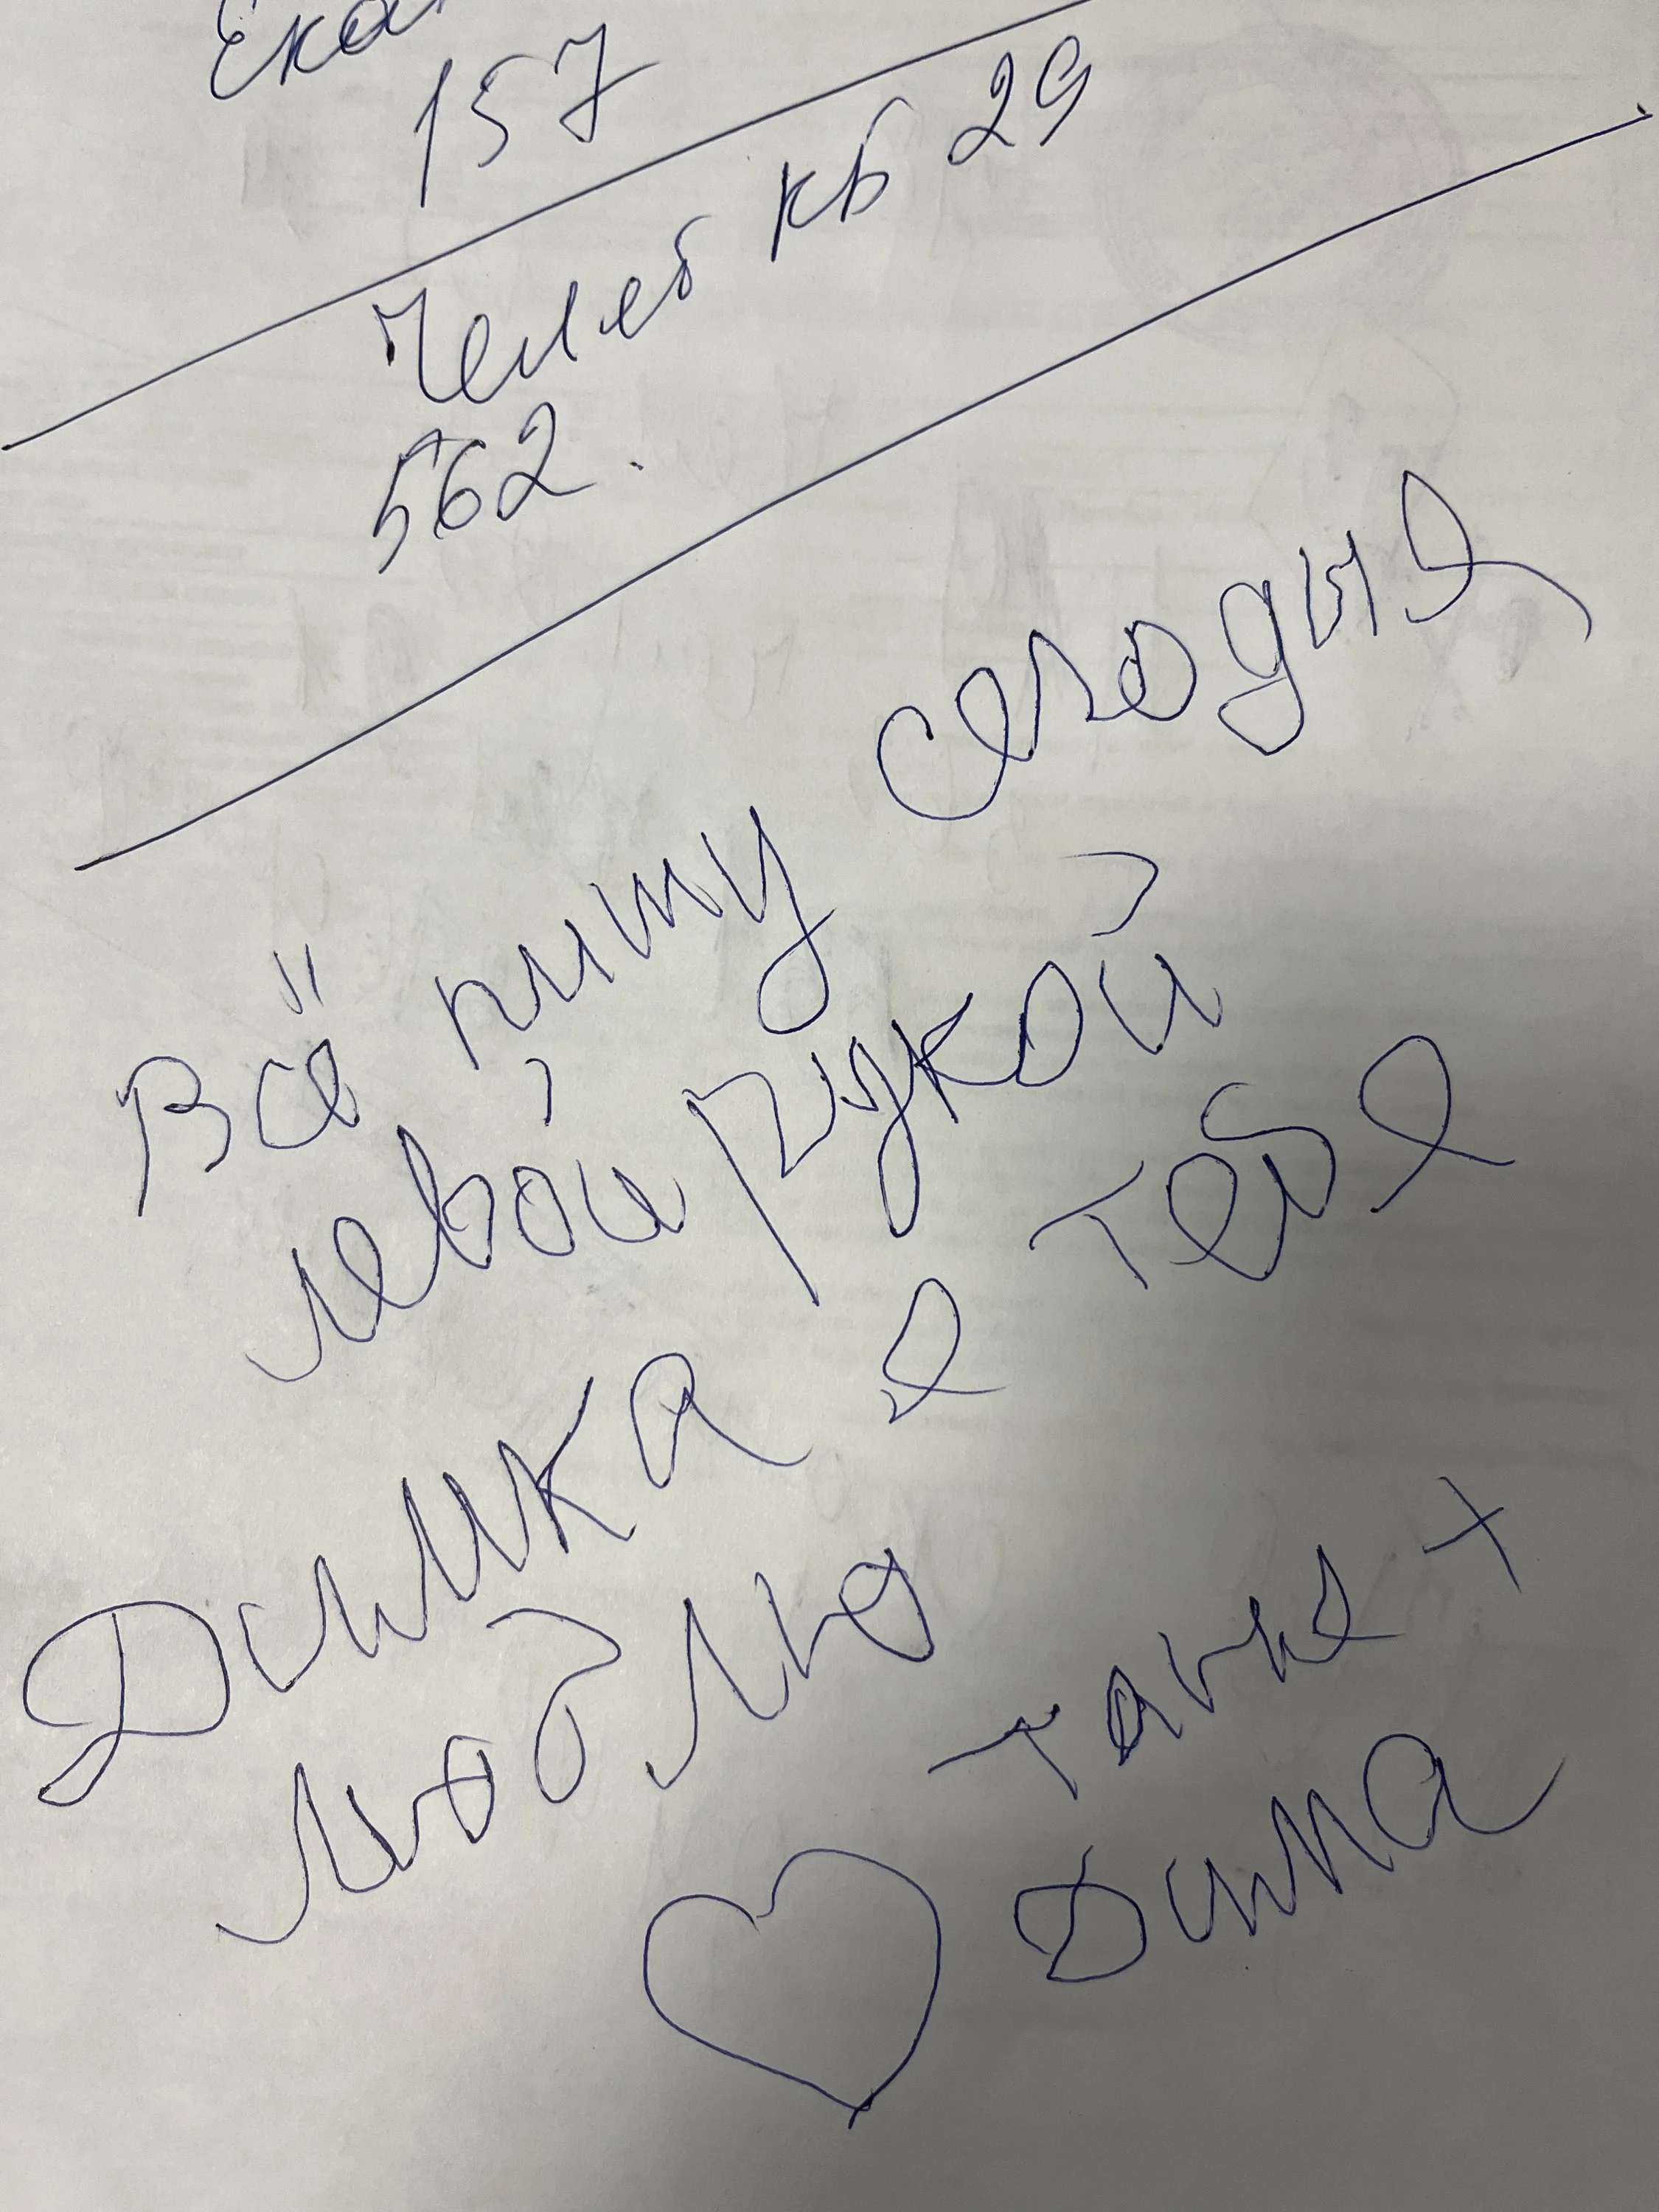 Ека
157
Челеб кв 29
562.
Всё пишу сегодня
левой рукой
Димка я тебя
люблю
Таня +
Дима